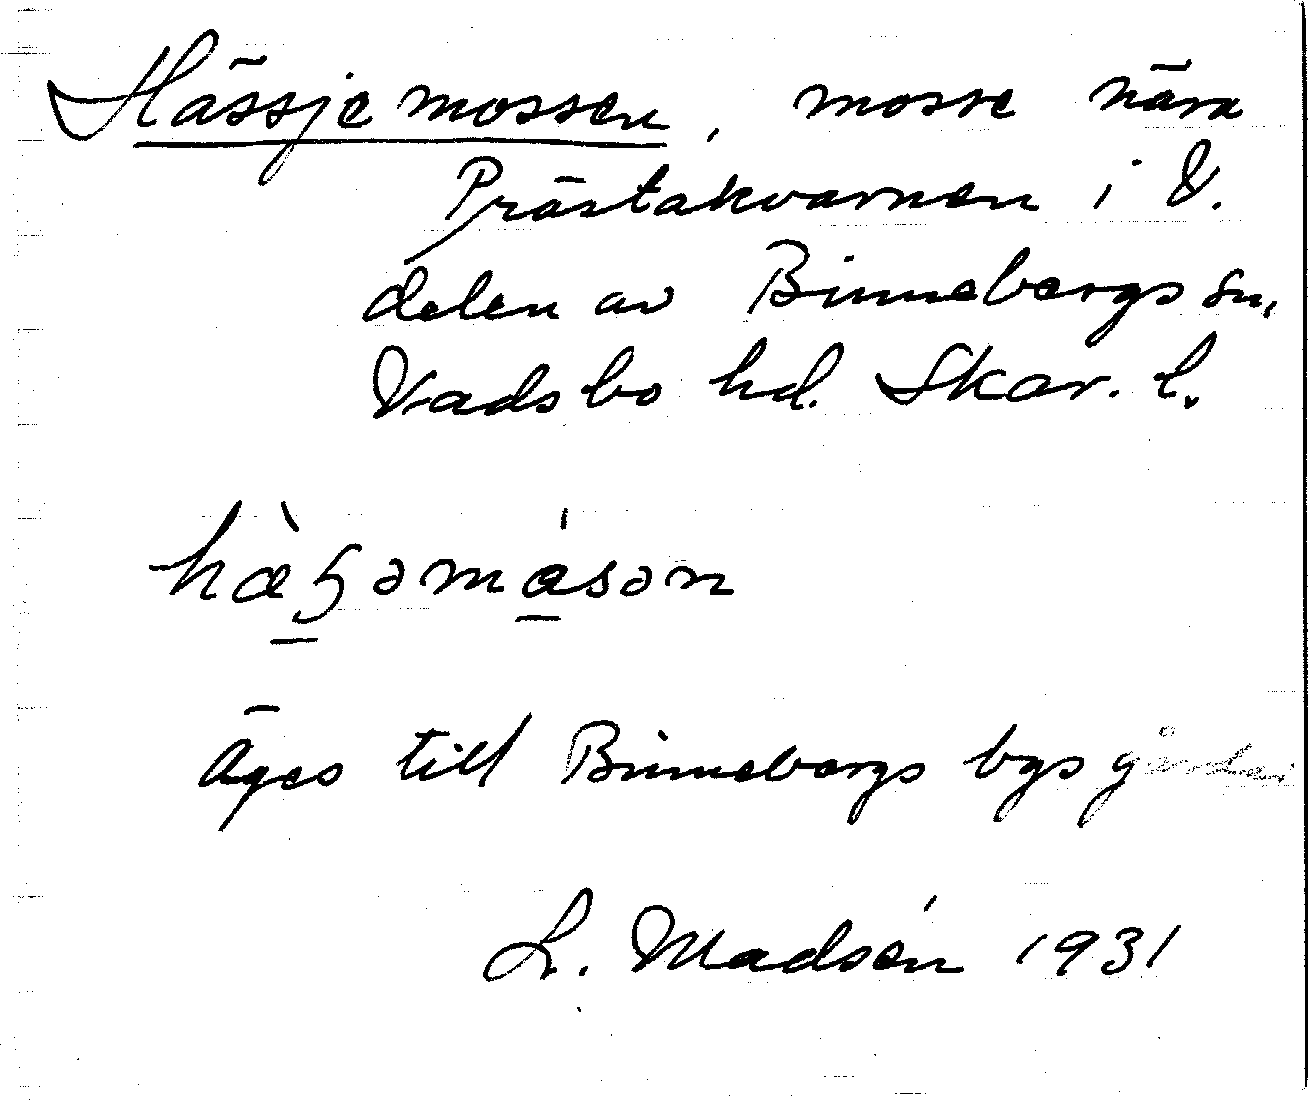 Hässjemossen, mosse nära
Prästakvarnen i V.
delen av Binnebergs sn,
Vadsbo hd. Skar. l.
hæ̀ʖəmåsən
Äges till Binnebergs bys gårdar
L. Madsén 1931